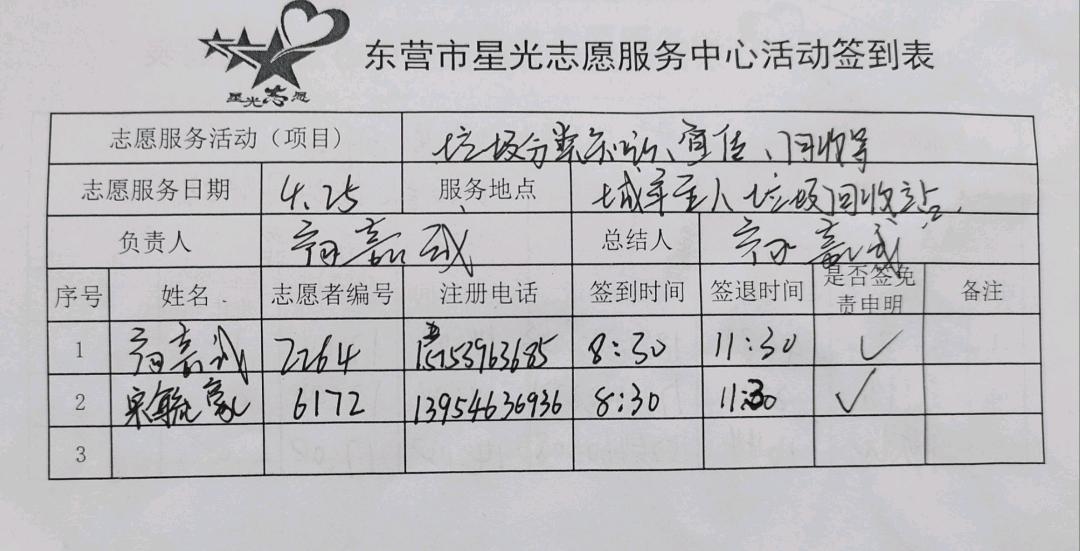 星光志愿
东营市星光志愿服务中心活动签到表
志愿服务活动（项目） 垃圾分类 宣传、回收等
志愿服务日期 4.25 服务地点 垃圾回收站
负责人 嘉 总结人 嘉
序号 姓名 志愿者编号 注册电话 签到时间 签退时间 是否签免责申明 备注
1 嘉 2264 15153963685 8:30 11:30 ✓
2 6172 13954636936 8:30 11:30 ✓
3